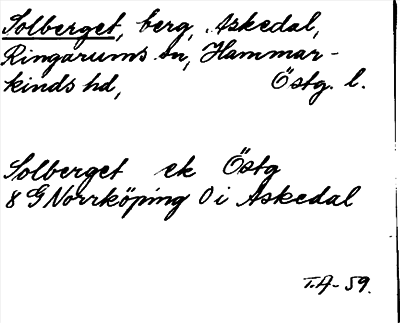 Solberget, berg, Askedal,
Ringarums sn, Hammar-
kinds hd, Östg. l.
Solberget ek Östg
8 G Norrköping 0 i Askedal
T.A- 59.